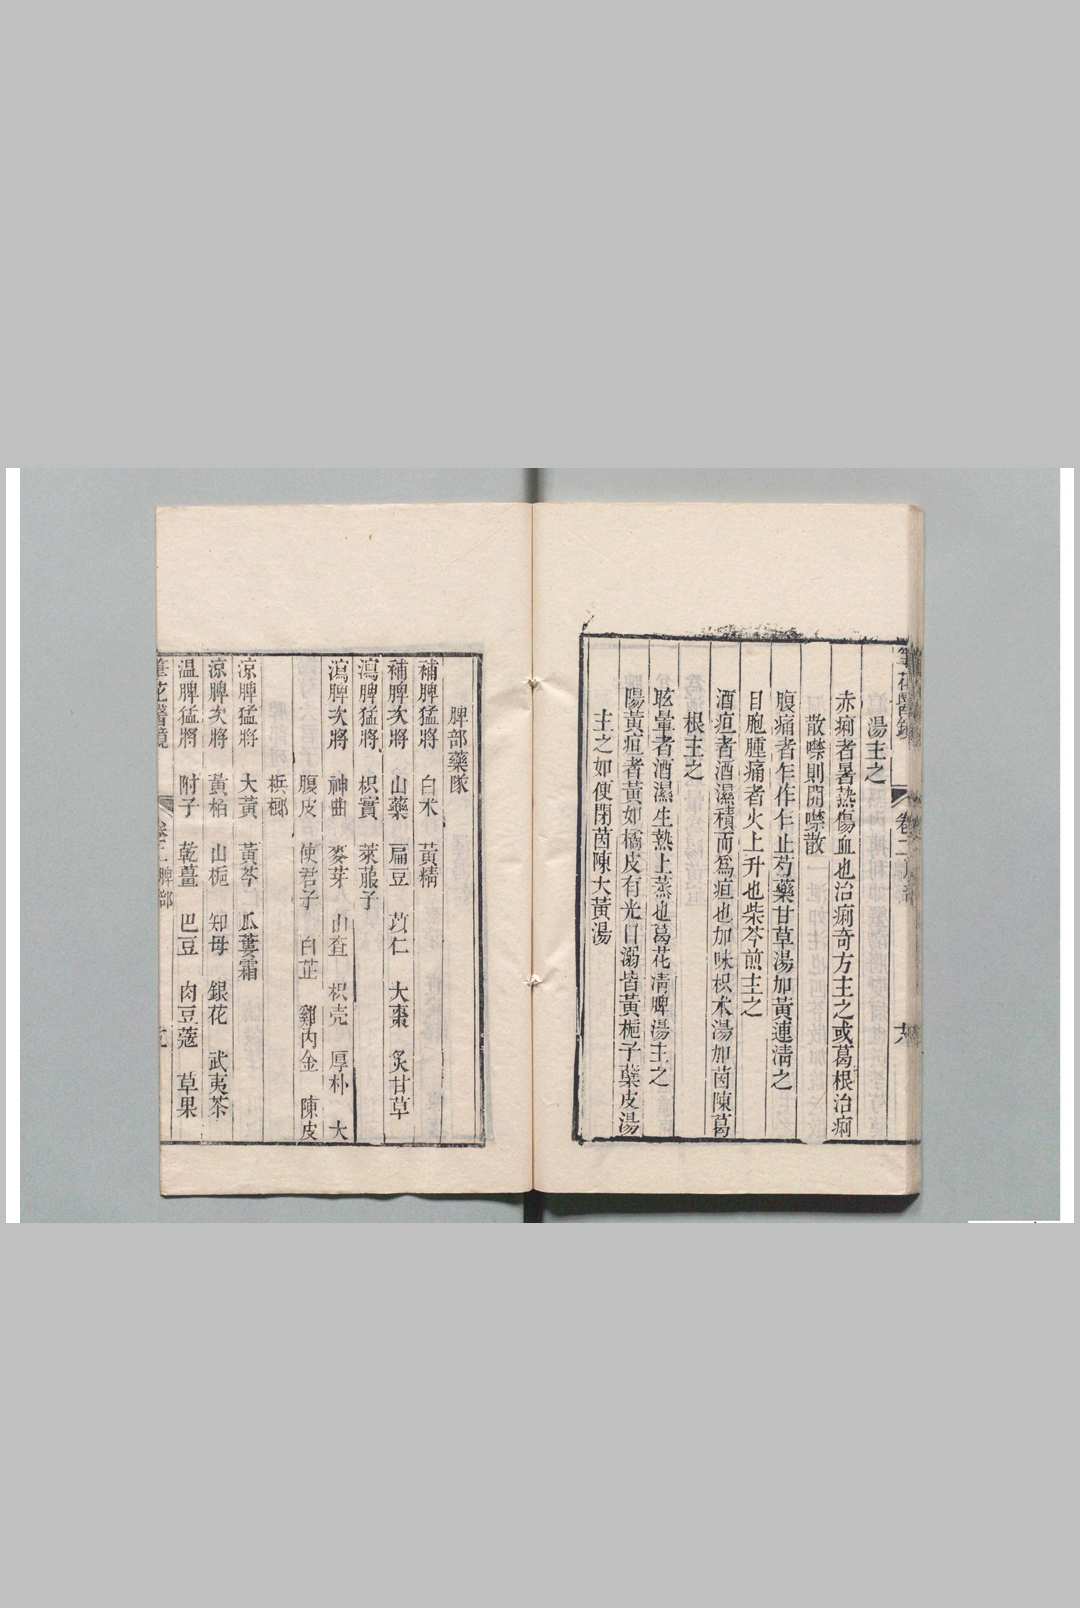 湯主之
赤痢者暑熱傷血也治痢奇方主之或葛根治痢
散噤則開噤散
腹痛者乍作乍止芍藥甘草湯加黃連清之
目胞腫痛者火上升也柴芩煎主之
酒疸者酒濕積而為疸也加味枳朮湯加茵陳葛
根主之
眩暈者酒濕生熱上蒸也葛花清脾湯主之
陽黃疸者黃如橘皮有光目溺皆黃梔子蘗皮湯
主之如便閉茵陳大黃湯
脾部藥隊
補脾猛將 白朮 黃精
補脾次將 山藥 扁豆 苡仁 大棗 炙甘草
瀉脾猛將 枳實 萊菔子
瀉脾次將 神曲 麥芽 山査 枳壳 厚朴 大
腹皮 使君子 白芷 雞內金 陳皮
梹榔
涼脾猛將 大黃 黃芩 瓜蔞霜
涼脾次將 黃栢 山梔 知母 銀花 武夷茶
温脾猛將 附子 乾薑 巴豆 肉豆蔻 草果
筆花醫鏡 卷二 脾部